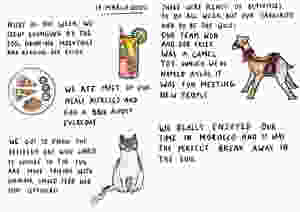 IN MARRAKECH
MOST OF THE WEEK, WE
SPENT LOUNGING BY THE
POOL, DRINKING MOCKTAILS
AND READING OUR BOOKS
WE ATE MOST OF OUR
MEALS ALFRESCO AND
FOR A BBQ ALMOST
EVERYDAY
WE GOT TO KNOW THE
RESIDENT CAT WHO LIKED
TO LOUNGE IN THE SUN
AND MORE FRIENDS WITH
WHOEVER COULD FEED HER
SOME LEFTOVERS
THERE WERE PLENTY OF ACTIVITIES
TO DO ALL WEEK, BUT OUR FAVOURITE
HAD TO BE THE QUIZ!
OUR TEAM WON
AND OUR PRIZE
WAS A CAMEL
TOY. WHICH WE'VE
NAMED
WAS FUN MEETING
NEW PEOPLE
WE REALLY ENJOYED OUR
TIME IN MOROCCO AND IT WAS
THE PERFECT BREAK AWAY IN
THE SUN.